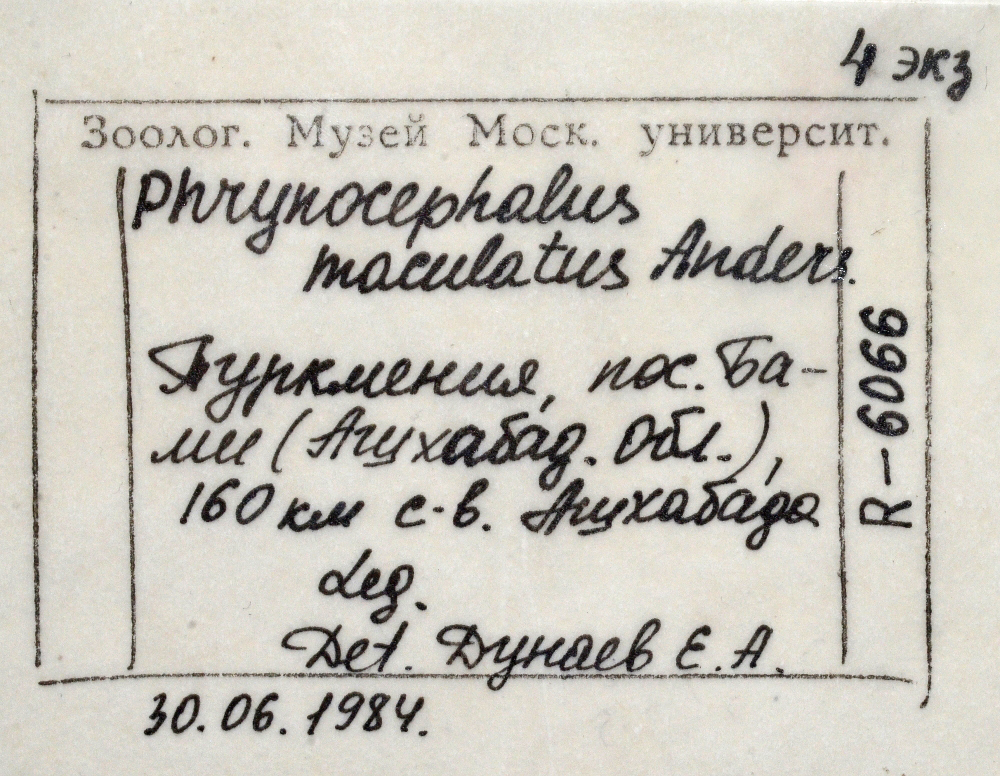 4 экз
Зоолог. Музей Моск. университ.
Phrynocephalus
maculatus Anders.
Туркмения, пос. Ба-
ми (Ашхабад. обл.),
160 км с-в. Ашхабада
R-6066
Leg.
Det. Дунаев Е.А.
30.06.1984.